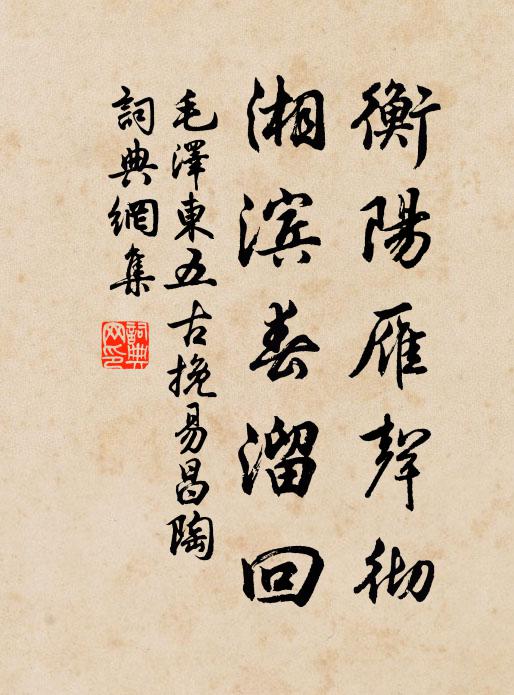 衡陽雁聲彻
湘滨春溜回
毛澤東五古挽易昌陶
詞典網集
詞典网印